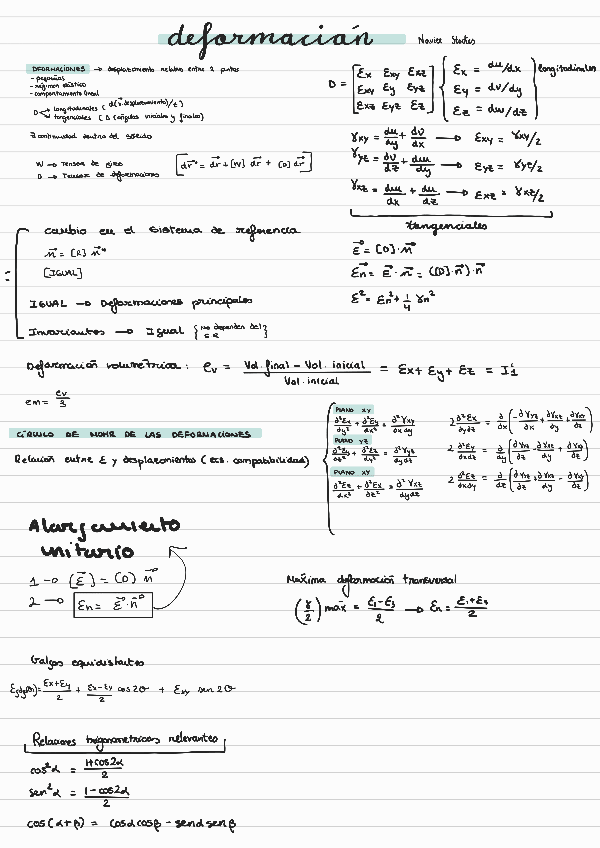 deformación
Navier Stockes
DEFORMACIONES → desplazamiento relativo entre 2 puntos
- pequeñas
- régimen elástico
- comportamiento lineal
D → longitudinales ( d(v.desplazamiento)/L)
→ tangenciales ( Δ (ángulos iniciales y finales)
∃ continuidad dentro del sólido
W → Tensor de giro
D → Tensor de deformaciones
[dr* = dr + [W] dr + [D] dr]
D = [εx εxy εxz
εxy εy εyz
εxz εyz εz]
{ εx = du/dx
εy = dv/dy
εz = dw/dz } longitudinales
γxy = du/dy + dv/dx → εxy = γxy/2
γyz = dv/dz + dw/dy → εyz = γyz/2
γxz = dw/dx + du/dz → εxz = γxz/2
tangenciales
ε = [D]·n
εn = ε · n = ([D]·n)·n
ε² = εn² + 1/4 γn²
cambio en el sistema de referencia
n = [R] n*
[IGUAL]
IGUAL → Deformaciones principales
Invariantes → Igual { No dependen del SR
Deformación volumétrica: ev = Vol. final - Vol. inicial / Vol. inicial = εx + εy + εz = I1
em = ev/3
CÍRCULO DE MOHR DE LAS DEFORMACIONES
Relación entre ε y desplazamiento (ecs. compatibilidad)
PLANO XY
∂²εx/∂y² + ∂²εy/∂x² = ∂²γxy/∂x∂y
PLANO YZ
∂²εy/∂z² + ∂²εz/∂y² = ∂²γyz/∂y∂z
PLANO XY
2 ∂²εx/∂y∂z = ∂/∂x (-∂γyz/∂x + ∂γxz/∂y + ∂γxy/∂z)
Alargamiento
unitario
1 → [ε] = [D] n
2 → εn = ε · n
Máxima deformación transversal
(γ/2) máx = ε1-ε3/2 → εn = ε1+ε3/2
Galgas equidistantes
= εx+εy/2 + εx-εy/2 cos 2θ + εxy sen 2θ
Relaciones trigonométricas relevantes
cos²α = 1+cos2α/2
sen²α = 1-cos2α/2
cos(α+β) = cosα cosβ - senα sen β